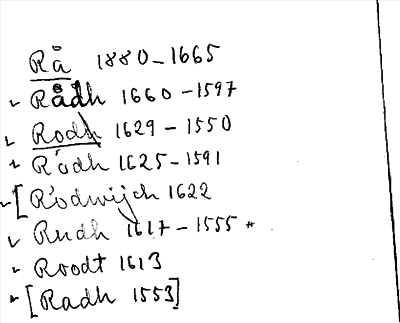 Rå 1880-1665
Rådh 1660-1597
Rodh 1629-1550
Rodh 1625-1591
[Rodwijch 1622
Rudh 1617-1555 *
Roodt 1613
[Radh 1553]